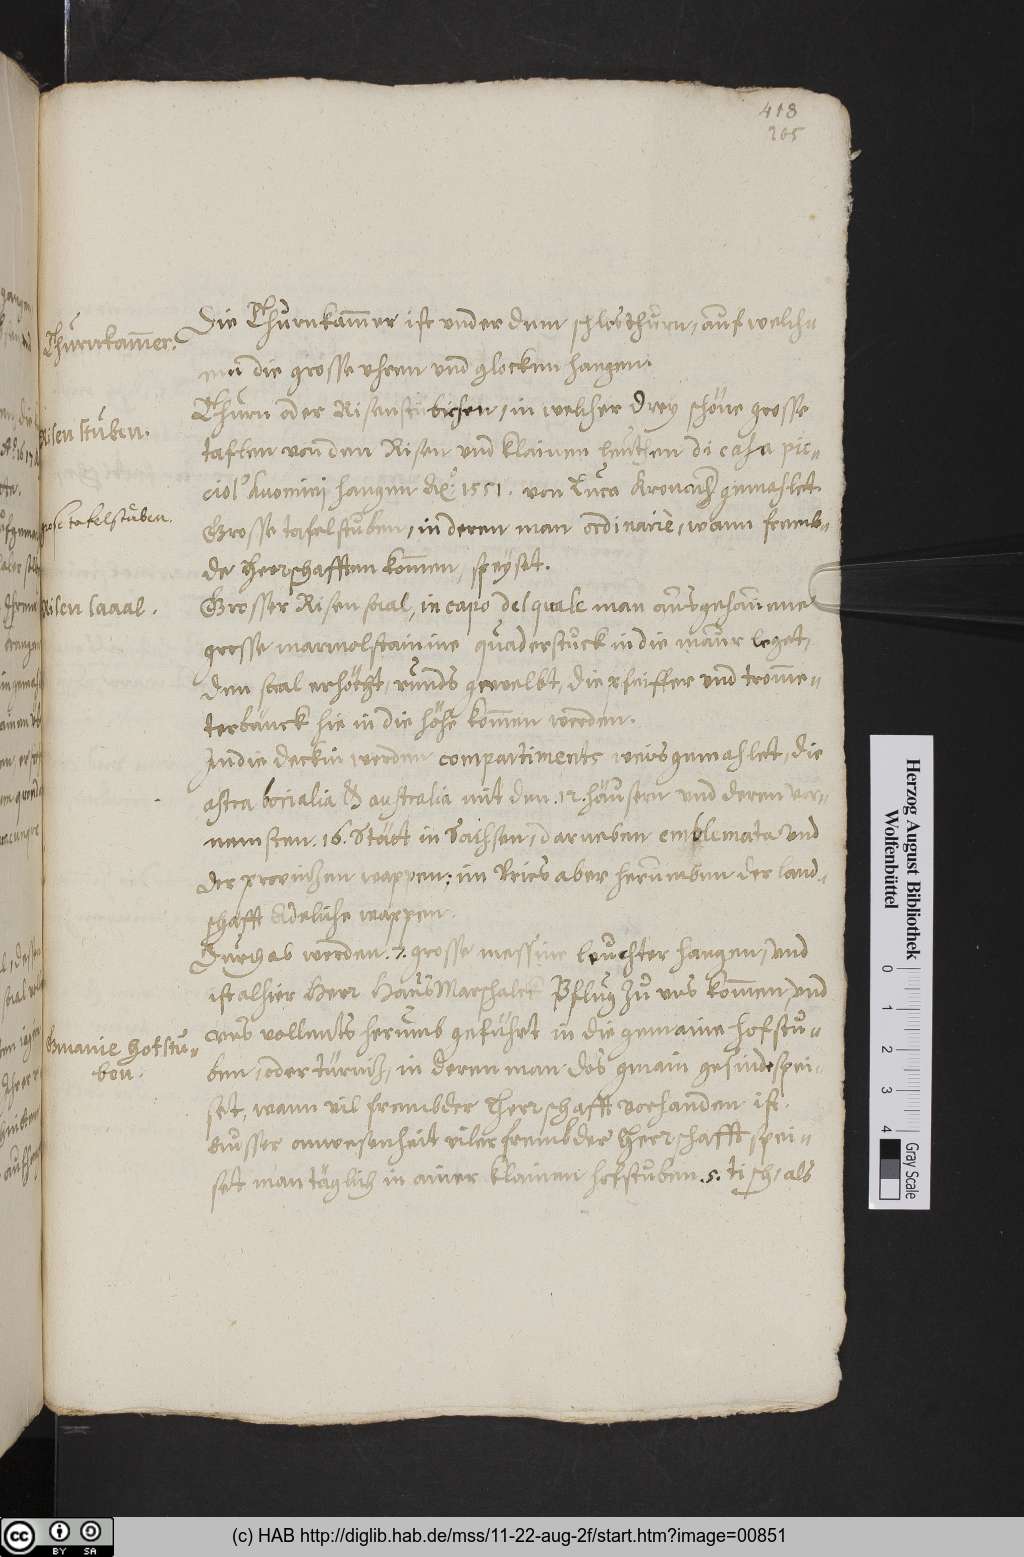 418
205
Thurnkam̄er.
Die Thurnkam̄er ist vnder dem schlosthurn, auf welch=
em die grosse vhren vnd glocken hangen.
Thurn oder Risenstübichen, in welcher drey schöne grosse
Risen stuben.
taflen von den Risen vnd klainen leuthen di casa pic=
ciol' huomini hangen Aō. 1551. von Luca Kronach gemahlet.
grose tafelstuben.
Grosse tafelstuben, in deren man ordinarie, wann fremb=
de Herrschafften kom̄en, speyset.
Risen saaal.
Grosser Risen saal, in capo del quale man ausgehauene
grosse marmolstainine quaderstuck in die maur leget,
den saal erhöcht, runds gewelbt, die pfeiffer vnd trom̄e=
terbänck hie in die höhe kom̄en werden.
In die decken werden compartiments weis gemahlet, die
astra borialia & australia mit den .12. häusern vnd deren vor=
nemsten .16. Stätt in Sachsen, darneben emblemata vnd
der provinzen wappen; im Kries aber herumben der land=
schafft Adeliche wappen.
Durchab werden .7. grosse messine leuchter hangen, vnd
ist alhier Herr HausMarschalck Pflug zu vns kom̄en, vnd
vns vollents herumb geführt in die gemaine hofstu=
Gmanie Hofstu=
ben.
ben, oder türnitz, in deren man das gmain gesinde spei=
set, wann vil frembder Herrschafft vorhanden ist.
Ausser anwesenheit viler frembder Herrschafft spei=
set man täglich in ainer klainen hofstuben .5. tisch, als
Herzog August Bibliothek
Wolfenbüttel
0 1 2 3 4
Gray Scale
cc BY SA
(c) HAB http://diglib.hab.de/mss/11-22-aug-2f/start.htm?image=00851